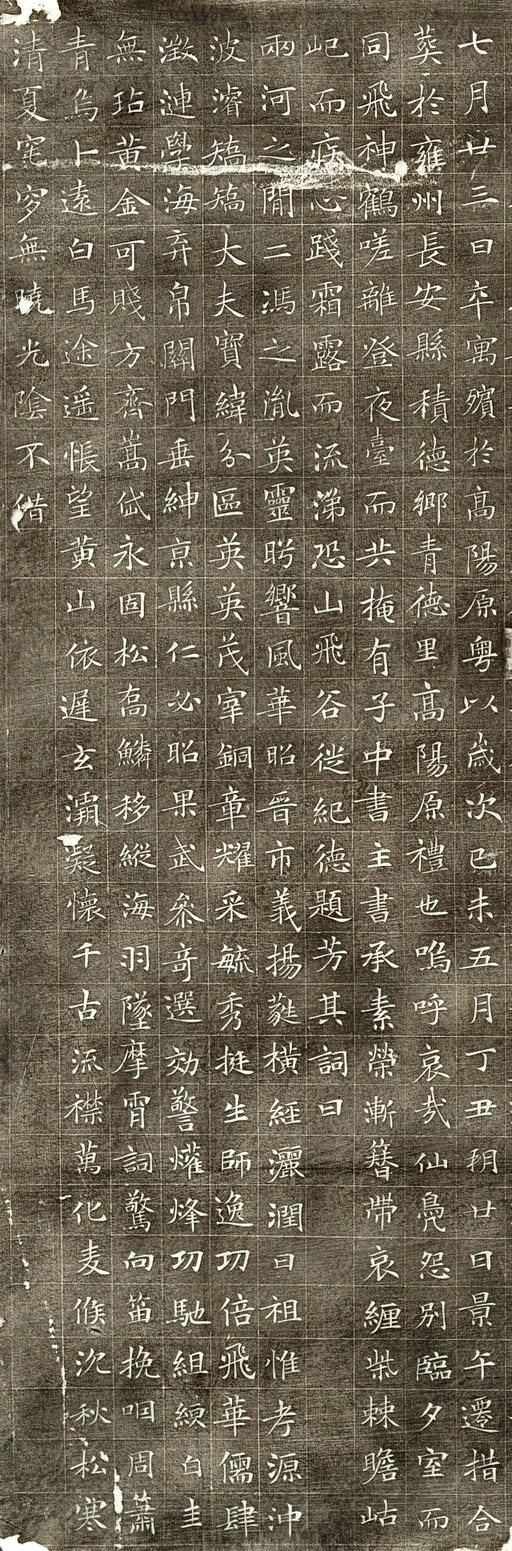 七月廿三日卒寓殯於高陽原粵以歲次己未五月丁丑朔廿日景午遷措合
葬於雍州長安縣積德鄉青德里高陽原禮也嗚呼哀哉仙鳧怨別臨夕室而
同飛神鶴嗟離登夜臺而共掩有子中書主書承素榮漸簪帶哀纏柴棘瞻岵
屺而疚心踐霜露而流涕恐山飛谷徙紀德題芳其詞曰
兩河之間二馮之胤英靈肹響風華昭晉市義揚蕤橫經灑潤曰祖惟考源沖
波濬矯矯大夫寶緯分區英英茂宰銅章耀采毓秀挺生師逸功倍飛華儒肆
激漣學海弃帛關門垂紳京縣仁必昭果武參奇選効警爟烽功馳組練白圭
無玷黃金可賤方齊嵩岱永固松喬鱗移縱海羽墜摩霄詞驚向笛挽咽周簫
青烏卜遠白馬途遥悵望黃山依遲玄灞凝懷千古流襟萬化麦候沉秋松寒
清夏窀穸無曉光陰不借